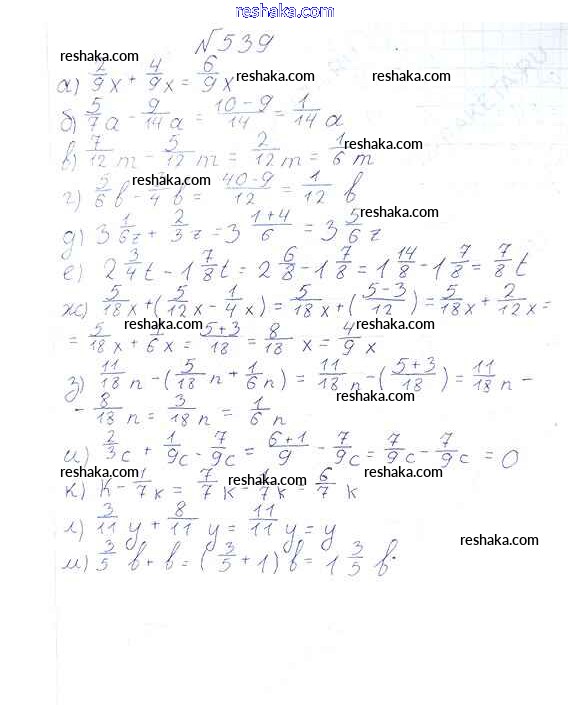 reshaka.com
№539
reshaka.com
а) 2/9 x + 4/9 x = 6/9 x
reshaka.com
reshaka.com
б) 5/7 a - 9/14 a = (10-9)/14 = 1/14 a
reshaka.com
в) 7/12 m - 5/12 m = 2/12 m = 1/6 m
reshaka.com
г) 5/6 b - /4 b = (40-9)/12 = 1/12 b
reshaka.com
д) 3 1/6 z + 2/3 z = 3 (1+4)/6 = 3 5/6 z
е) 2 3/4 t - 1 7/8 t = 2 6/8 - 1 7/8 = 1 14/8 - 1 7/8 = 7/8 t
reshaka.com
ж) 5/18 x + (5/12 x - 1/4 x) = 5/18 x + ((5-3)/12) = 5/18 x + 2/12 x =
reshaka.com
= 5/18 x + /6 x = (5+3)/18 = 8/18 x = 4/9 x
з) 11/18 n - (5/18 n + 1/6 n) = 11/18 n - ((5+3)/18) = 11/18 n -
reshaka.com
- 8/18 n = 3/18 n = 1/6 n
reshaka.com
и) 2/3 c + 1/9 c - 7/9 c = (6+1)/9 - 7/9 c = 7/9 c - 7/9 c = 0
reshaka.com
reshaka.com
reshaka.com
к) k - 1/7 k = 7/7 k - 1/7 k = 6/7 k
л) 3/11 y + 8/11 y = 11/11 y = y
reshaka.com
м) 3/5 b + b = (3/5 + 1) b = 1 3/5 b.